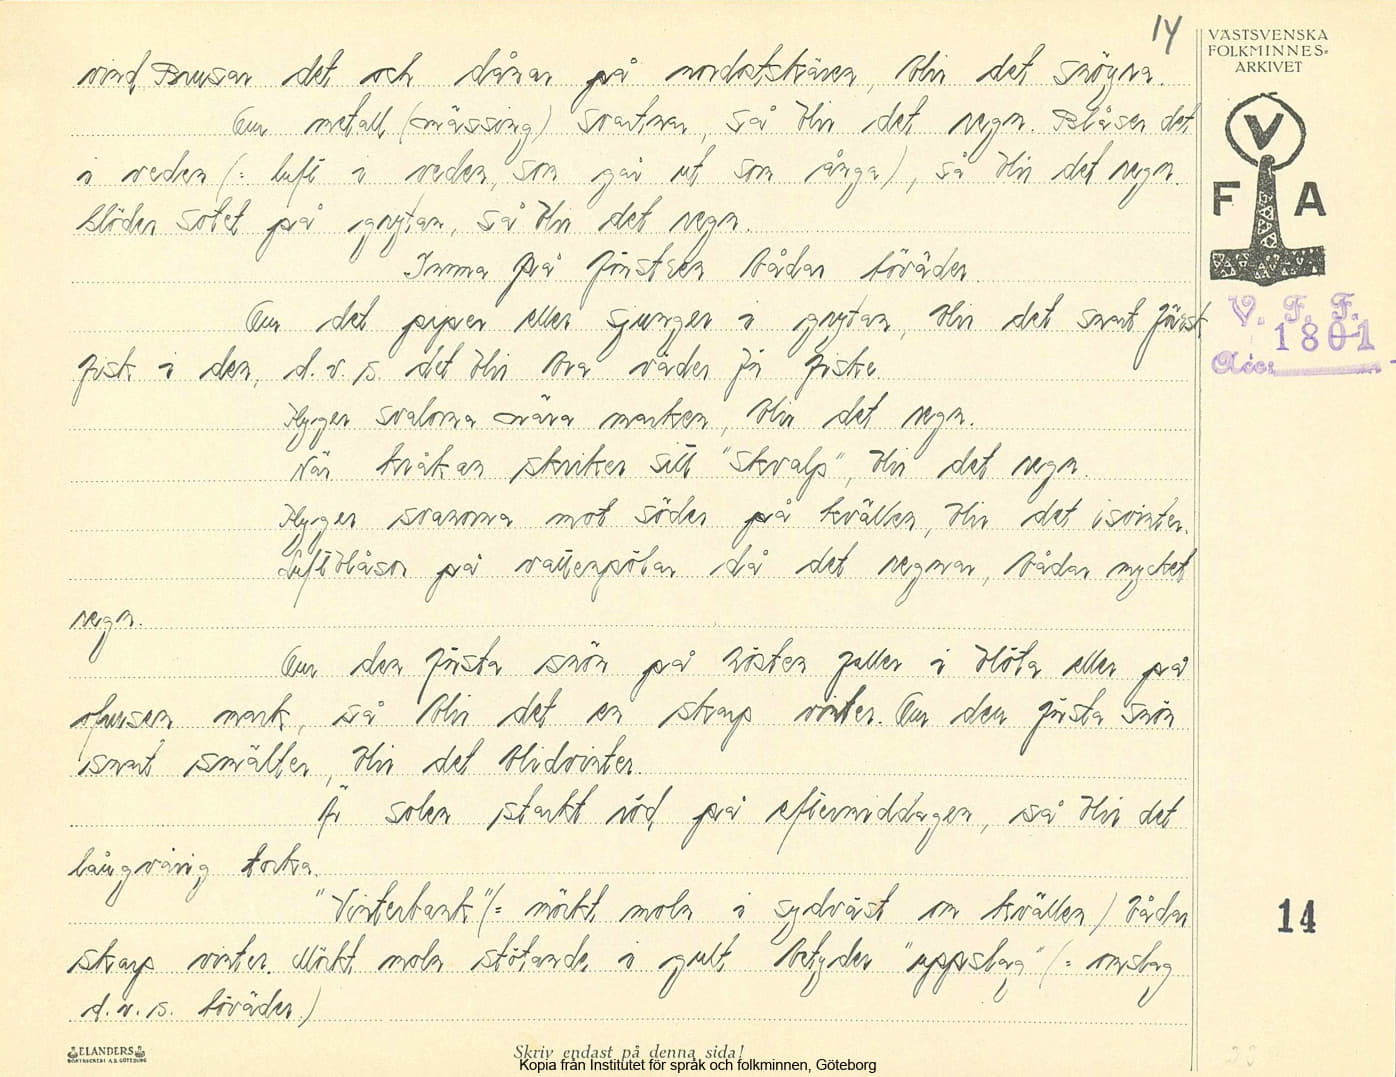 14
VÄSTSVENSKA
FOLKMINNES-
ARKIVET
V
F A
V. F. F.
1801
Acc:
vind. Brusar det och dånar på nordostskären, blir det snöyra.
Om metall (mässing) svartnar, så blir det regn. Blåser det
i veden (: luft i veden, som går ut som ånga), så blir det regn.
Blöder sotet på grytan, så blir det regn.
Imma på fönstren bådar töväder.
Om det piper eller sjunger i grytan, blir det snart färsk
fisk i den, d.v.s. det blir bra väder för fiske.
Flyger svalorna nära marken, blir det regn.
När kråkan skriker sitt "skvalp", blir det regn.
Flyger svanorna mot söder på kvällen, blir det isvinter.
Luftblåsor på vattenpölar då det regnar, bådar mycket
regn.
Om den första snön på hösten faller i blöta eller på
ofrusen mark, så blir det en skarp vinter. Om den första snön
snart smälter, blir det blidvinter.
Är solen starkt röd på eftermiddagen, så blir det
långvarig torka.
"Vinterbank" (= mörkt moln i sydväst om kvällen) bådar
skarp vinter. Mörkt moln stötande i gult betyder "uppslag" (= omslag
d.v.s. töväder.)
14
ELANDERS
BOKTRYCKERI A.B. GÖTEBORG
Skriv endast på denna sida!
Kopia från Institutet för språk och folkminnen, Göteborg